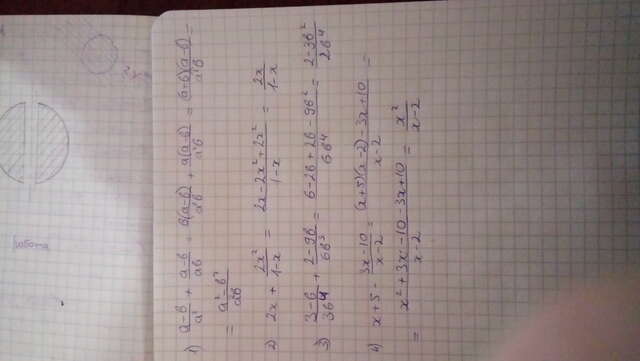 1) (a-b)/a² + (a-b)/ab = (b(a-b))/a²b + (a(a-b))/a²b = ((a+b)(a-b))/a²b =
= (a²-b²)/a²b
2) 2x + 2x²/(1-x) = (2x-2x²+2x²)/(1-x) = 2x/(1-x)
3) (3-b)/3b⁴ + (2-9b)/6b³ = (6-2b+2b-9b²)/6b⁴ = (2-3b²)/2b⁴
4) x+5 - (3x-10)/(x-2) = ((x+5)(x-2)-3x+10)/(x-2) =
= (x²+3x-10-3x+10)/(x-2) = x²/(x-2)